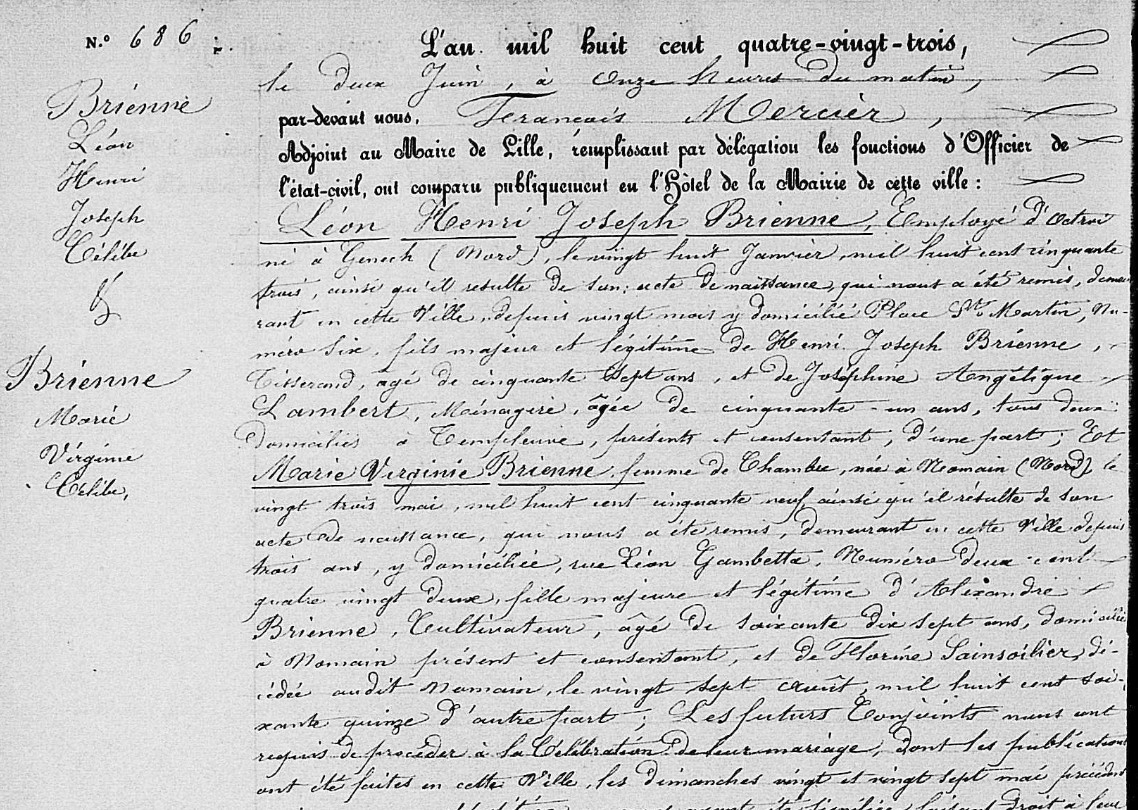 N.º 686
Brienne
Léon
Henri
Joseph
Célibe
&
Brienne
Marie
Virginie
Célibe,
L'an mil huit cent quatre-vingt-trois,
le deux Juin, à onze heures du matin,
par-devant nous, Francois Mercier,
Adjoint au Maire de Lille, remplissant par délégation les fonctions d'Officier de
l'état-civil, ont comparu publiquement en l'Hôtel de la Mairie de cette ville :
Léon Henri Joseph Brienne, Employé d'Octroi
né à Genech (Nord), le vingt huit Janvier, mil huit cent cinquante
trois, ainsi qu'il résulte de son acte de naissance, qui nous a été remis, demeu
rant en cette Ville, depuis vingt mois y domicilié Place St Martin, Nu-
méro Six, fils majeur et légitime de Henri Joseph Brienne,
Tisserand, agé de cinquante Sept ans, et de Joséphine Angélique
Lambert, Ménagère, âgée de cinquante-un ans, tous deux
domiciliés à Templeuve, présents et consentant, d'une part; Et
Marie Virginie Brienne, femme de Chambre, née à Nomain (Nord) le
vingt trois mai, mil huit cent cinquante neuf, ainsi qu'il résulte de son
acte de naissance, qui nous a été remis, demeurant en cette Ville depuis
trois ans, y domiciliée, rue Léon Gambetta, Numéro deux-cent
quatre vingt deux, fille majeure et légitime d'Alexandre
Brienne, Cultivateur, âgé de soixante dix sept ans, domicilié
à Nomain présent et consentant, et de Florine Sainsoilier, dé-
cédée audit Nomain, le vingt sept Août, mil huit cent soi-
xante quinze d'autre part; Les futurs Conjoints nous ont
requis de procéder à la Célébration de leur mariage, dont les publications
ont été faites en cette Ville, les dimanches vingt et vingt sept mai précédent